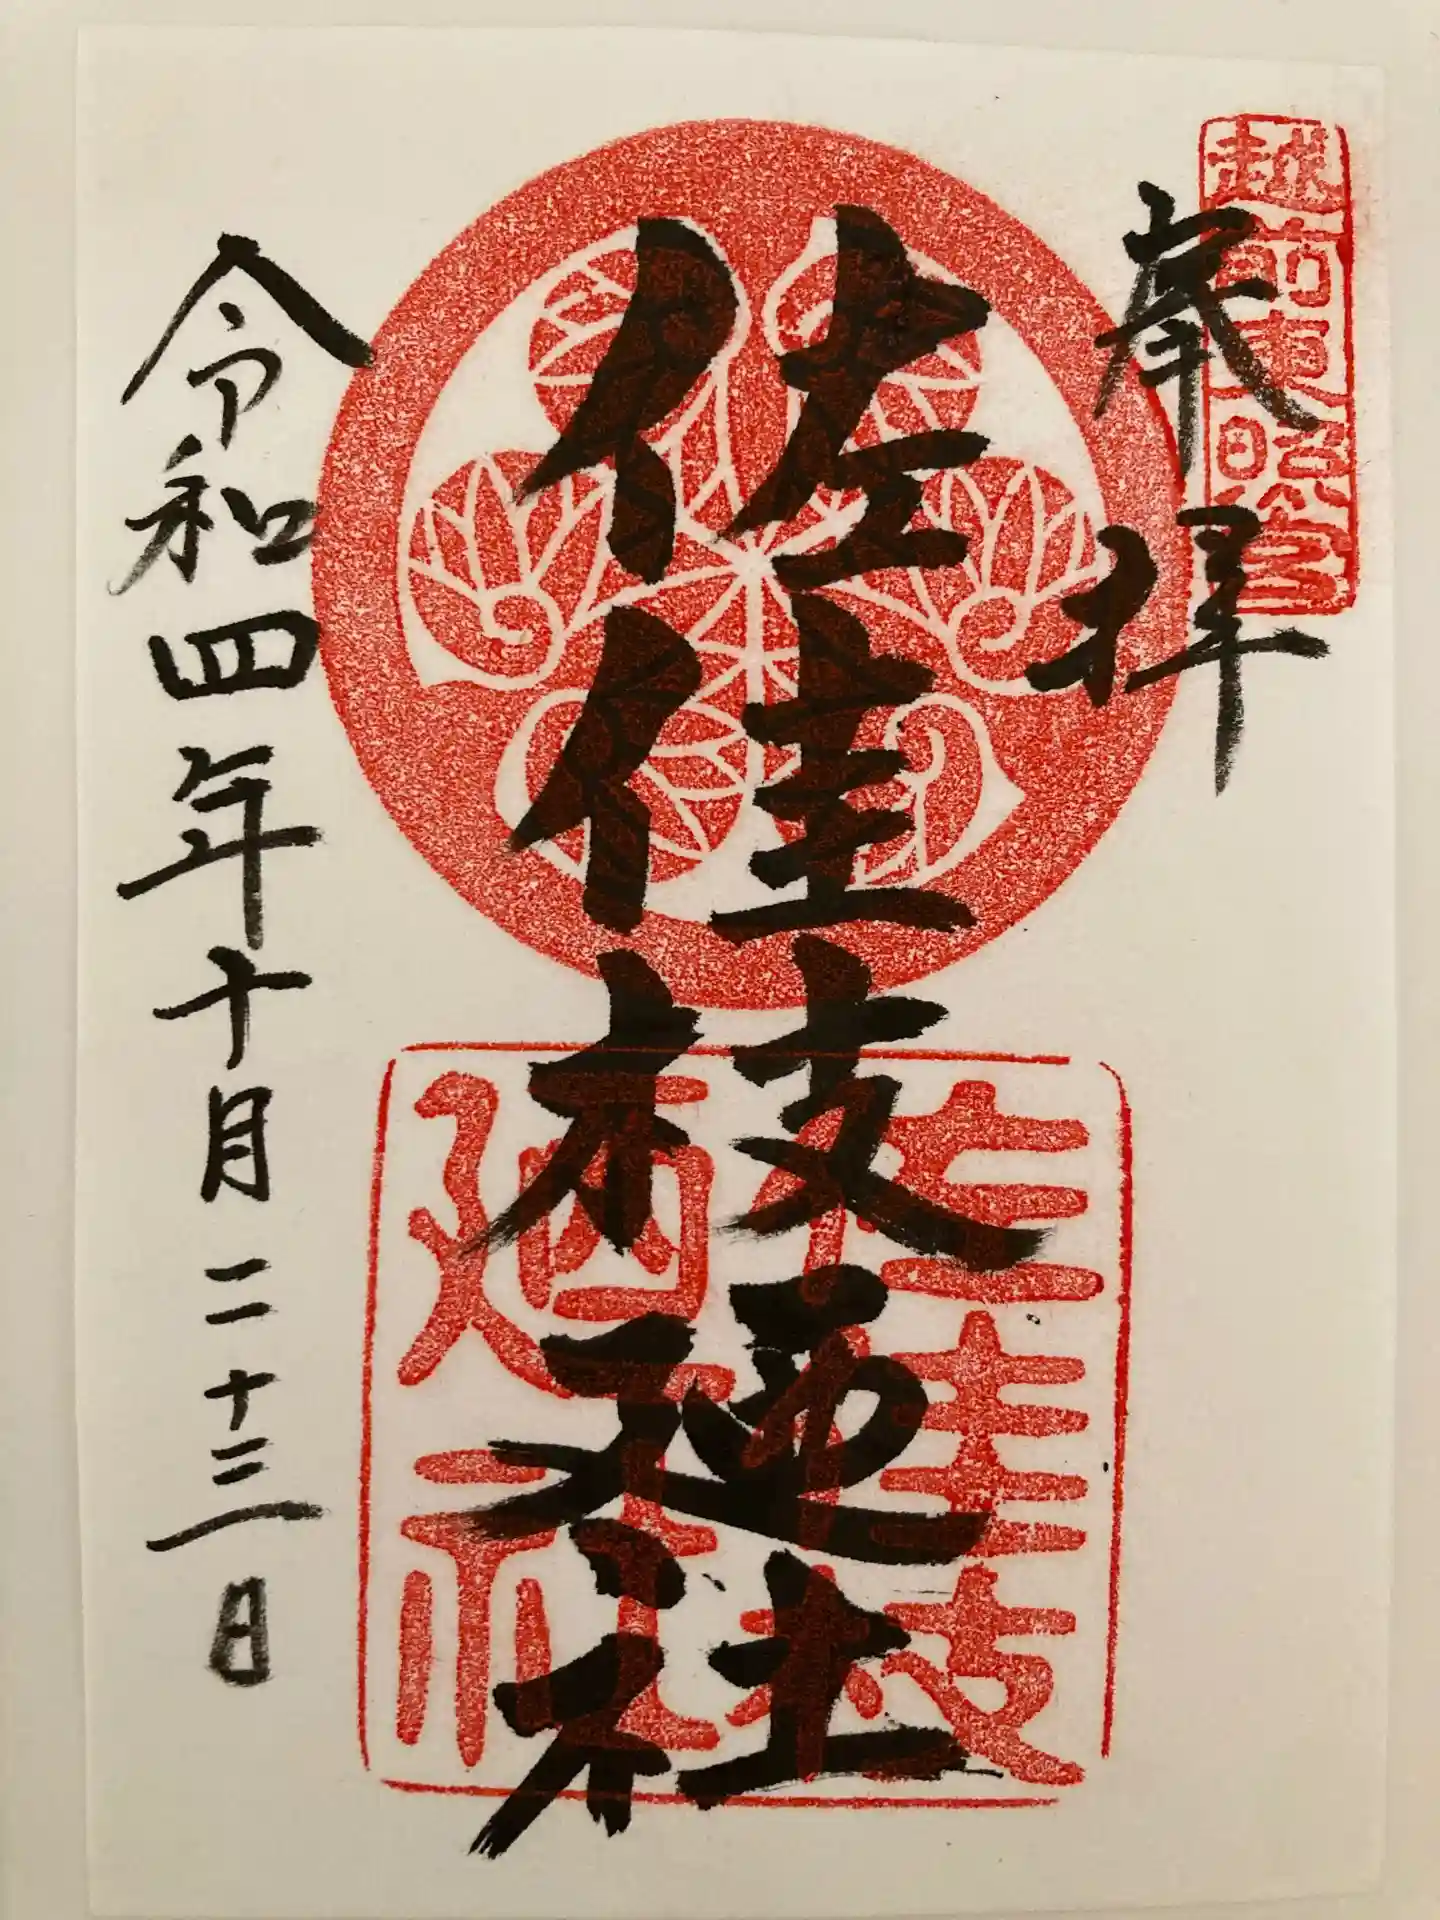 越前東照宮
奉拝
佐佳枝廼社
佐佳枝
廼社
令和四年十月二十三日